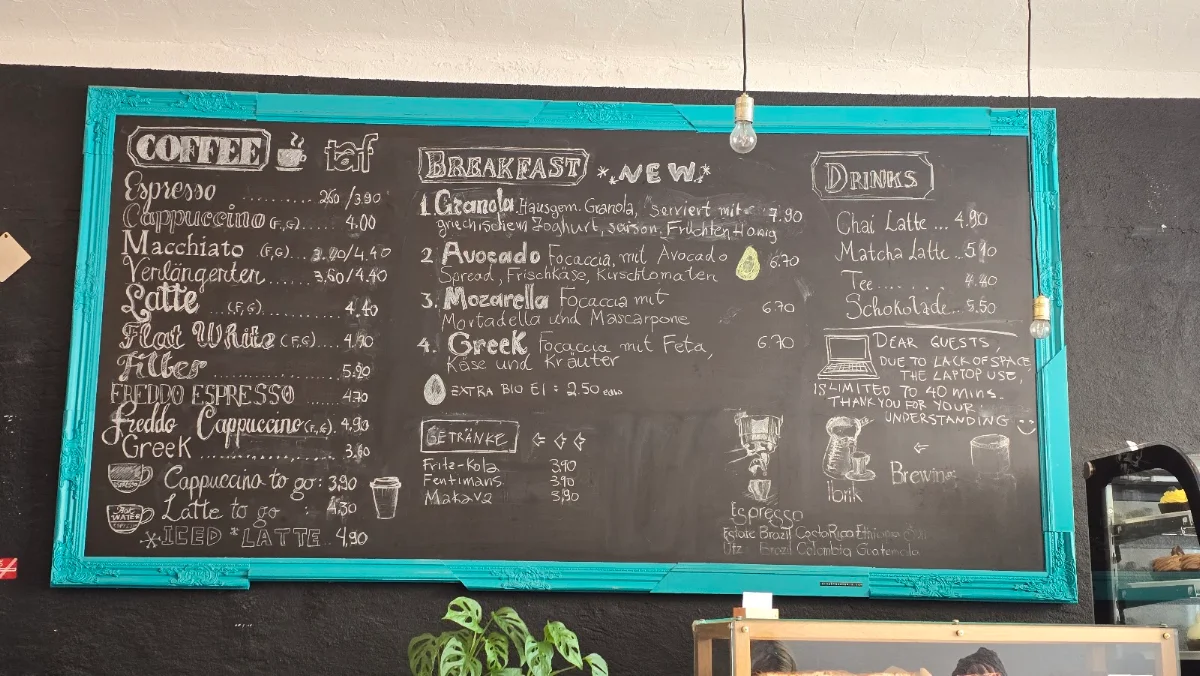 COFFEE taf
Espresso ......... 2.60/3.90
Cappuccino (F,G)..... 4.00
Macchiato (F,G)... /4.40
Verlängerter ....... 3,60/4.40
Latte ...(F,G)........ 4.40
Flat White (F,G).... 4.90
Filter .................. 5.20
FREDDO ESPRESSO ..... 4.70
Freddo Cappuccino (F,G). 4,90
Greek ..................... 3.60
Cappuccino to go: 3,90
Latte to go : 4,30
*ICED *LATTE.. 4,90
BREAKFAST *.NEW.*
1. Granola Hausgem. Granola, serviert mit 7.90
griechischem Joghurt, saison. Früchten, Honig
2. Avocado Focaccia, mit Avocado 6.70
Spread, Frischkäse, Kirschtomaten
3. Mozarella Focaccia mit 6.70
Mortadella und Mascarpone
4. Greek Focaccia mit Feta, 6.70
Käse und Kräuter
EXTRA BIO EI : 2.50
GETRÄNKE
Fritz-Kola 3,90
Fentimans 3,90
Makava 3,90
DRINKS
Chai Latte ... 4.90
Matcha Latte ..5.90
Tee........ 4.40
Schokolade... 5.50
DEAR GUESTS,
DUE TO LACK OF SPACE,
THE LAPTOP USE,
IS LIMITED TO 40 MINS.
THANK YOU FOR YOUR
UNDERSTANDING
Espresso
Ibrik
Brewing
Estate Brazil CostaRica Ethiopia
Utz Brazil Colombia Guatemala